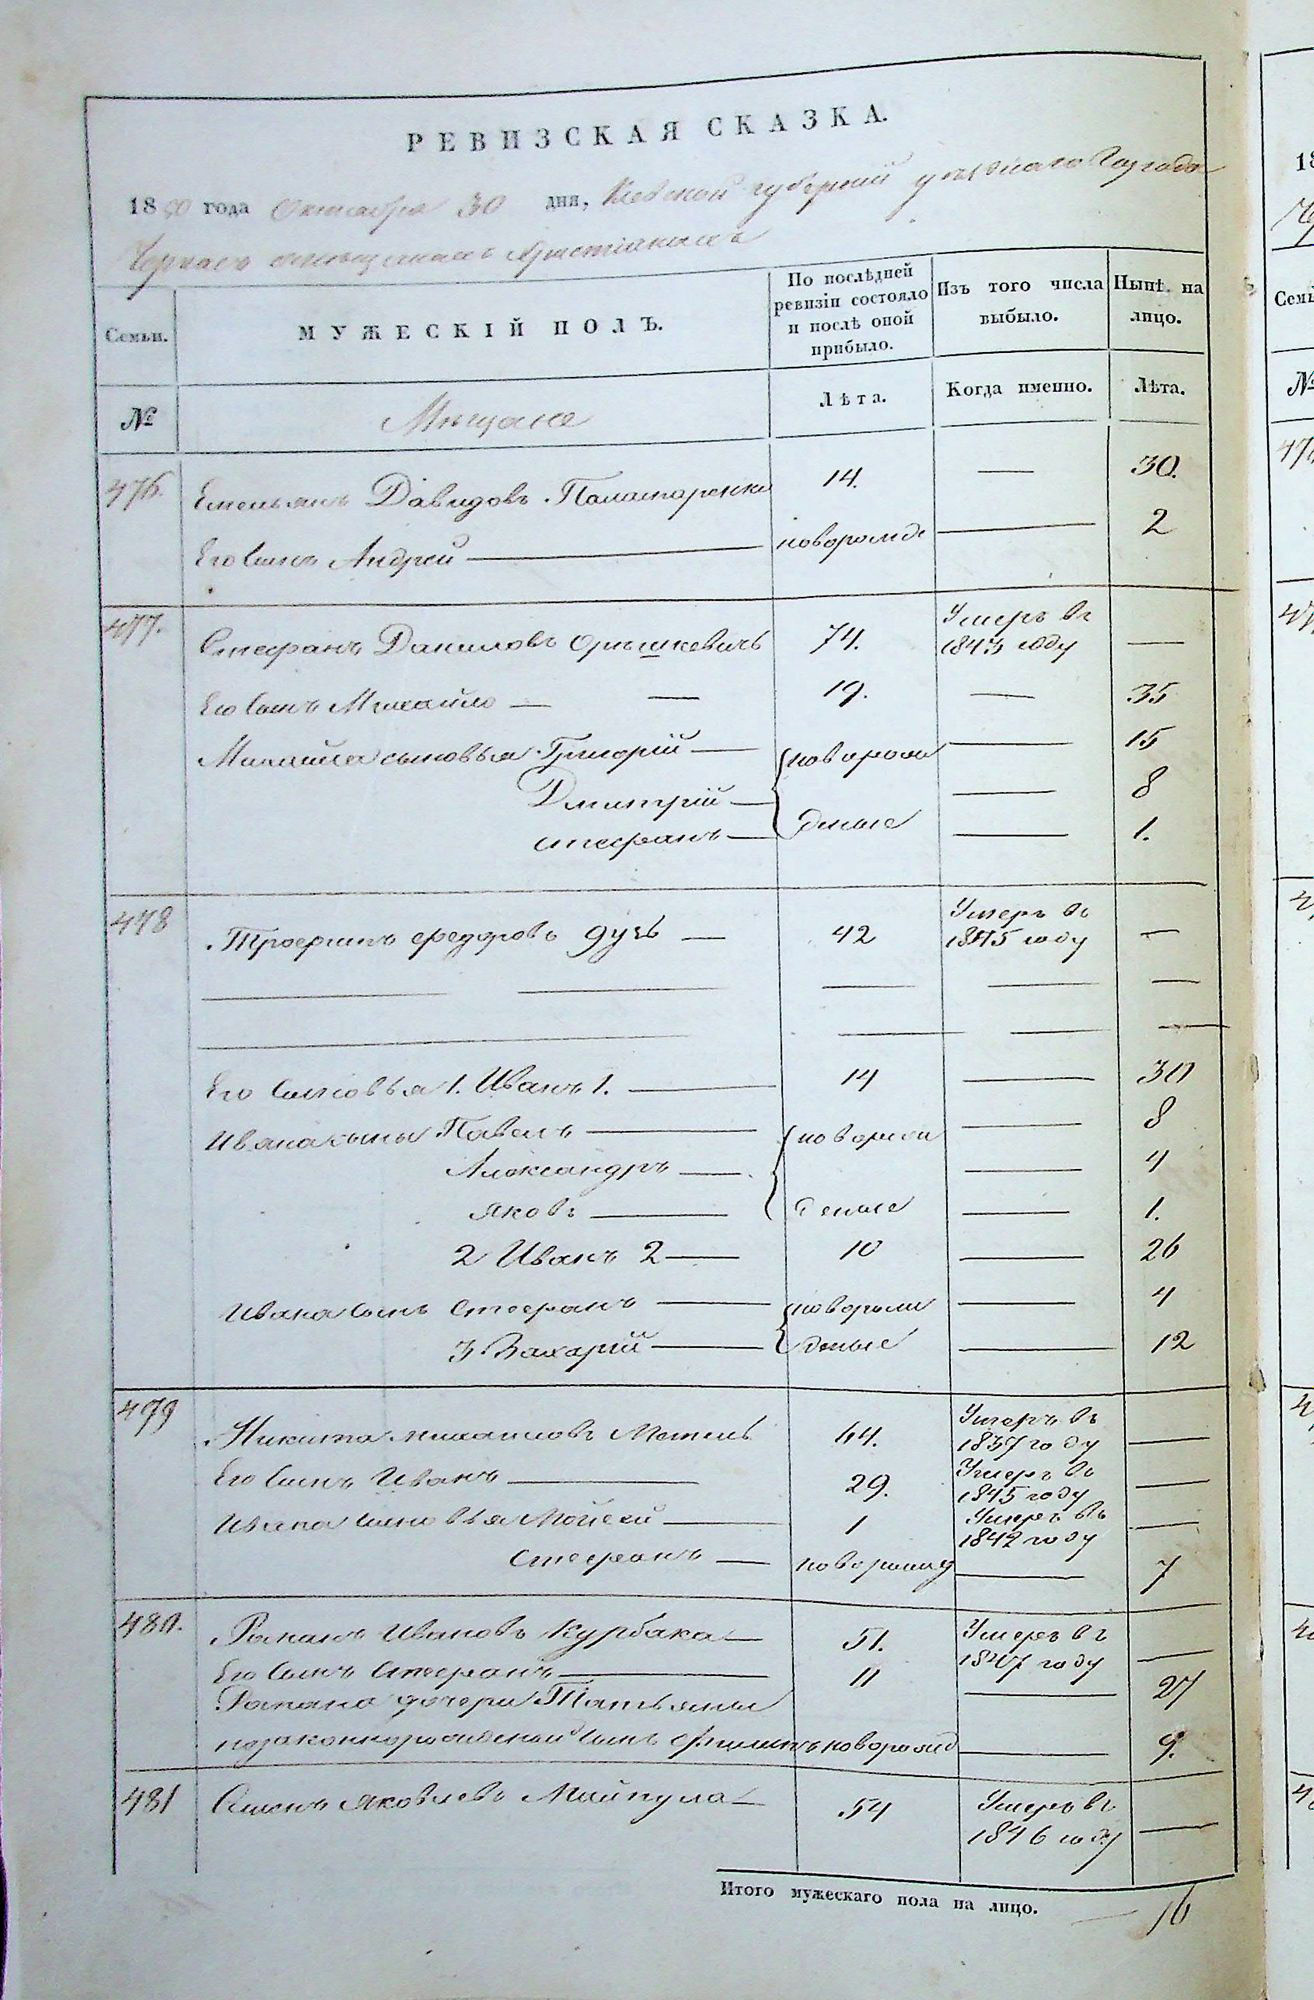 РЕВИЗСКАЯ СКАЗКА.
1850 года Октября 30 дня, Киевской губернии уезднаго Города
Черкасъ мещанамъ Христіянамъ
Семьи. МУЖЕСКІЙ ПОЛЪ. По послѣдней ревизіи состояло и послѣ оной прибыло. Изъ того числа выбыло. Нынѣ на лицо.
№ Мищане Лѣта. Когда именно. Лѣта.
476. Емельянъ Давидовъ Паламаренко 14. — 30.
Его Сынъ Андрей — новорожде — 2
477. Стефанъ Даниловъ 74. Умеръ въ 1843 году —
Его Сынъ Михайло — — 19. — 35
Михайла сыновья Григорій — новорож — 15
Дмитрій — — 8
Стефанъ — денные — 1.
478 Трофимъ Федоровъ Дузь — 42 Умеръ въ 1845 году —
Его Сыновья 1. Иванъ 1. — 14 — 30
Ивана сыны Павелъ — новорож — 8
Александръ — — 4
Яковъ — денные — 1.
2 Иванъ 2 — 10 — 26
Ивана Сынъ Стефанъ — новорож — 4
3. Захарій — денные — 12
479 Никита Михаиловъ 64. Умеръ въ 1837 году —
Его Сынъ Иванъ — 29. Умеръ въ 1845 году —
Ивана Сыновья Мойсей — 1 Умеръ въ 1842 году —
Стефанъ — новорожд — 7
480. Романъ Ивановъ Курбака — 51. Умеръ въ 1847 году —
Его Сынъ Стефанъ — 11 — 27
Романа дочери Татьяны
незаконнорожденный Сынъ Филипъ новорожд — 9.
481 Яковлевъ Майпула — 54 Умеръ въ 1846 году —
Итого мужескаго пола на лицо. — 16